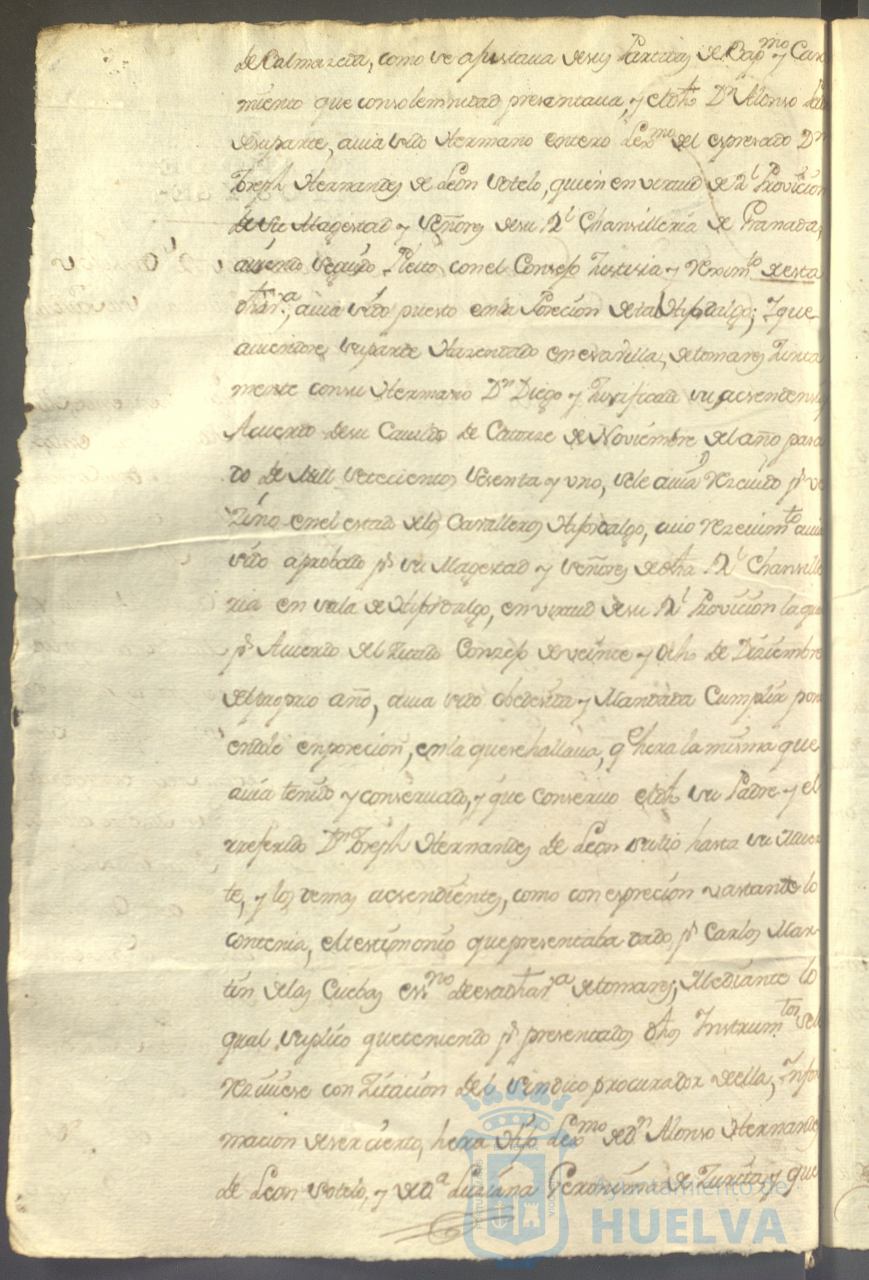 de Calmaestra, como se ajustava desus Partidas de Bapmo y Casa
miento que consolemnidad presentava, y el dho Dn Alonso
desuparte, avia sido Hermano entero Lexmo del espresado Dn
Joseph Hernandes de Leon Sotelo, quien en virtud de Rl Provicion
de su Magestad y Señores desu Rl Chansilleria de Granada,
aviendo seguido Pleito con el Consejo Justisia y Reximto de esta
dha va, avia sido puesto en la Posecion de tal Hijodalgo; Y que
aviendose suparte Hazendado en esa villa, de tomares Junta
mente consu Hermano Dn Diego y Justificado su acsendensia
Acuerdo desu Cavildo de Catorze de Noviembre del año pasa
do de Mill setecientos sesenta y uno, sele avia Rezivido pr ve
zino en el estado delos Cavalleros Hijosdalgo, cuio rezevimto avia
sido aprobado pr su Magestad y señores de dha Rl Chansille
ria en sala de Hijosdalgo, en virtud desu Rl Provicion la que
pr Acuerdo del zitado Conzejo de veinte y ocho de Diziembre
del propio año, avia sido obedesida y Mandada Cumplir pon
endole en posecion, en la que se hallava, qe hera la misma que
avia tenido y conservado, y que conservo el dho su Padre y el
rreferido Dn Joseph Hernandes de Leon sutio hasta su Muer
te, y los demas acsendientes, como con esprecion vastante lo
contenia, el testimonio que presentaba dado pr Carlos Mar
tin delas Cuebas essno de esa dha va de tomares; Mediante lo
qual suplico que teniendo pr presentados dhos Instrumtos sele
reziviese con Zitacion del sindico procurador de ella, Infor
macion de ser cierto, hera Hijo Lexmo de Dn Alonso Hernandes
de Leon Sotelo, y de Da Luziana Geronima de Zurita y que
Ayuntamiento de
HUELVA